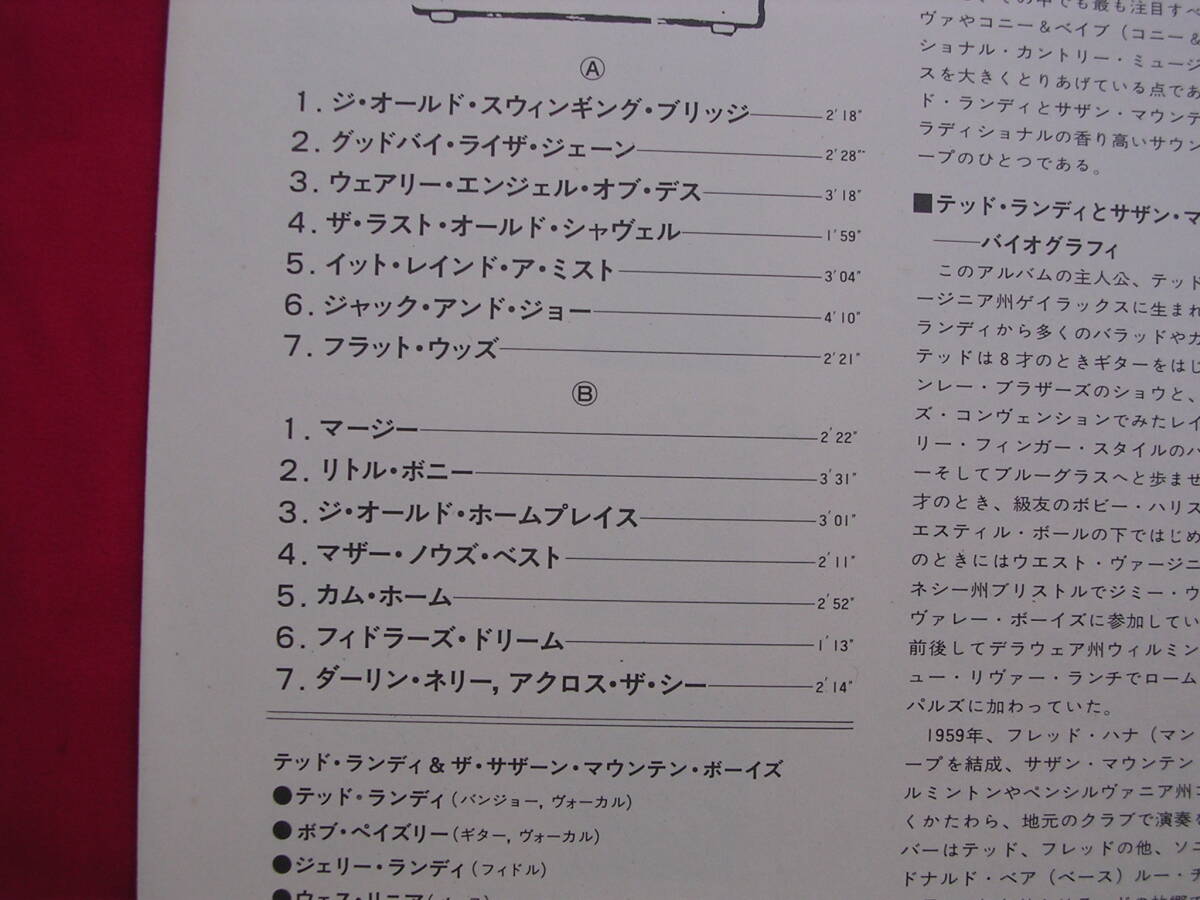 Ⓐ
1. ジ・オールド・スウィンギング・ブリッジ 2'18"
2. グッドバイ・ライザ・ジェーン 2'28"
3. ウェアリー・エンジェル・オブ・デス 3'18"
4. ザ・ラスト・オールド・シャヴェル 1'59"
5. イット・レインド・ア・ミスト 3'04"
6. ジャック・アンド・ジョー 4'10"
7. フラット・ウッズ 2'21"
Ⓑ
1. マージー 2'22"
2. リトル・ボニー 3'31"
3. ジ・オールド・ホームプレイス 3'01"
4. マザー・ノウズ・ベスト 2'11"
5. カム・ホーム 2'52"
6. フィドラーズ・ドリーム 1'13"
7. ダーリン・ネリー, アクロス・ザ・シー 2'14"
テッド・ランディ & ザ・サザーン・マウンテン・ボーイズ
●テッド・ランディ(バンジョー, ヴォーカル)
●ボブ・ペイズリー(ギター, ヴォーカル)
●ジェリー・ランディ(フィドル)
の中でも最も注目すべ
ヴァやコニー&ベイブ(コニー&
ショナル・カントリー・ミュージ
スを大きくとりあげている点であ
ド・ランディとサザン・マウンテ
ラディショナルの香り高いサウン
ープのひとつである。
■テッド・ランディとサザン・マ
――バイオグラフィ
このアルバムの主人公、テッド
ージニア州ゲイラックスに生まれ
ランディから多くのバラッドやカ
テッドは8才のときギターをはじ
ンレー・ブラザーズのショウと、
ズ・コンヴェンションでみたレイ
リー・フィンガー・スタイルのバ
ーそしてブルーグラスへと歩ませ
才のとき、級友のボビー・ハリス
エスティル・ボールの下ではじめ
のときにはウエスト・ヴァージニ
ネシー州ブリストルでジミー・ウ
ヴァレー・ボーイズに参加してい
前後してデラウェア州ウィルミン
ュー・リヴァー・ランチでローム
パルズに加わっていた。
1959年、フレッド・ハナ(マン
ープを結成、サザン・マウンテン
ルミントンやペンシルヴァニア州
くかたわら、地元のクラブで演奏を
バーはテッド、フレッドの他、ソニ
ドナルド・ベア(ベース)ルー・チ